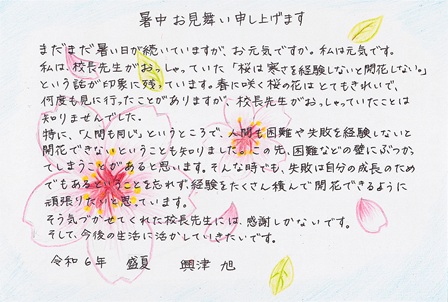 暑中お見舞い申し上げます
まだまだ暑い日が続いていますが、お元気ですか。私は元気です。
私は、校長先生がおっしゃっていた「桜は寒さを経験しないと開花しない。」
という話が印象に残っています。春に咲く桜の花はとてもきれいで、
何度も見に行ったことがありますが、校長先生がおっしゃっていたことは
知りませんでした。
特に、「人間も同じ」というところで、人間も困難や失敗を経験しないと
開花できないということも知りました。この先、困難などの壁にぶつかっ
てしまうことがあると思います。そんな時でも、失敗は自分の成長のため
でもあるということを忘れず、経験をたくさん積んで開花できるように
頑張りたいと思っています。
そう気づかせてくれた校長先生には、感謝しかないです。
そして、今後の生活に活かしていきたいです。
令和6年 盛夏 興津 旭